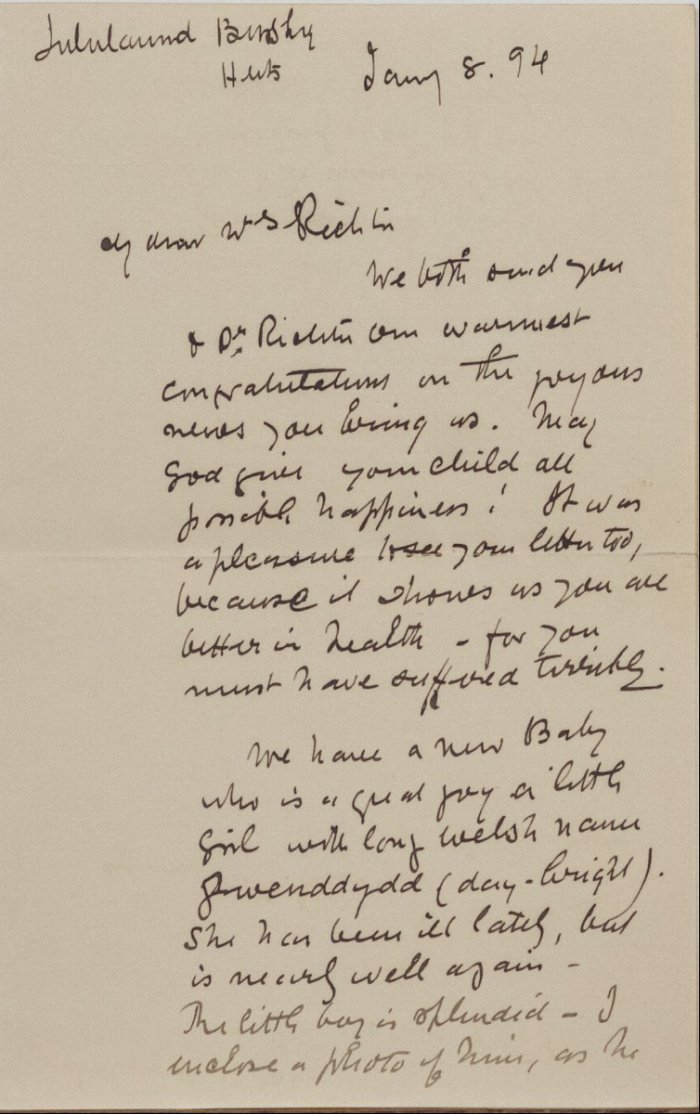 Lululaund Bushey
Herts
Jany 8. 94
My dear Mrs Richter
We both send you
& Dr. Richter our warmest
congratulations on the joyous
news you bring us. May
God give your child all
possible happiness! It was
a pleasure to see your letter too,
because it shows us you are
better in health - for you
must have suffered terribly.
We have a new Baby
who is a great joy a little
girl with long welsh name
Gwenddydd (day-bright).
She has been ill lately, but
is nearly well again -
The little boy is splendid - I
enclose a photo of him, as he